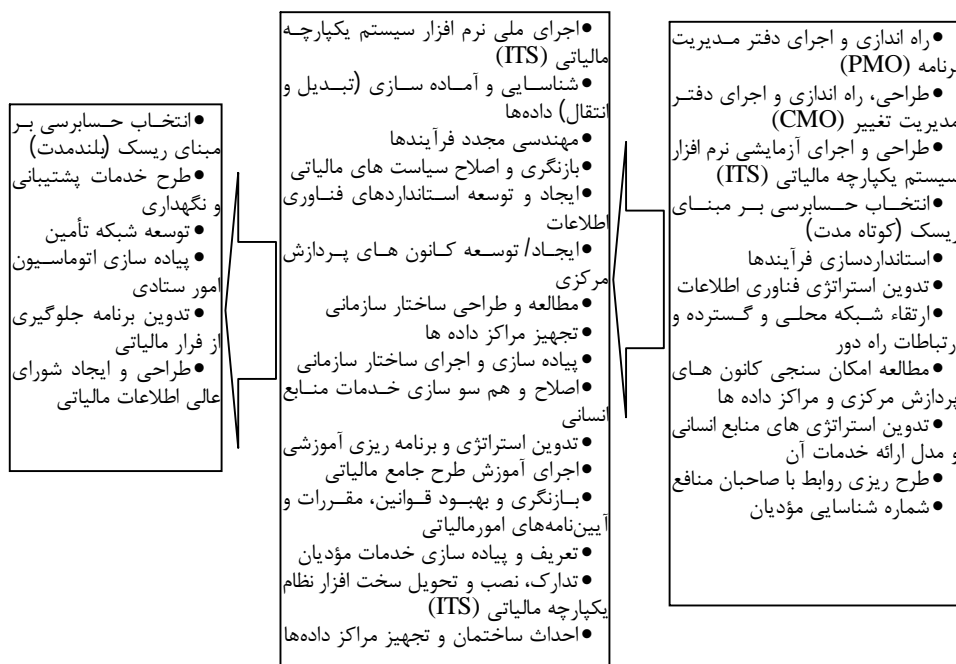 ●راه اندازی و اجرای دفتر مـدیریت
برنامه (PMO)
●طراحی، راه اندازی و اجرای دفتـر
مدیریت تغییر (CMO)
●طراحی و اجرای آزمایشی نرم افزار
سیستم یکپارچه مالیاتی (ITS)
●انتخـاب حــسابرسی بــر مبنــای
ریسک (کوتاه مدت)
●استانداردسازی فرآیندها
●تدوین استراتژی فناوری اطلاعات
●ارتقاء شـبکه محلـی و گـسترده و
ارتباطات راه دور
●مطالعه امکان سنجی کانون هـای
پردازش مرکزی و مراکز داده ها
●تدوین استراتژی های منابع انسانی
و مدل ارائه خدمات آن
●طرح ریزی روابط با صاحبان منافع
●شماره شناسایی مؤدیان
●اجرای ملی نرم افزار سیستم یکپارچـه
مالیاتی (ITS)
●شناسـایی و آمـاده سـازی (تبـدیل و
انتقال) داده‌ها
●مهندسی مجدد فرآیندها
●بازنگری و اصلاح سیاست های مالیاتی
●ایجاد و توسعه اسـتانداردهای فنـاوری
اطلاعات
●ایجـاد/ توسـعه کـانون هـای پـردازش
مرکزی
●مطالعه و طراحی ساختار سازمانی
●تجهیز مراکز داده ها
●پیاده سازی و اجرای ساختار سازمانی
●اصلاح و هم سو سازی خـدمات منـابع
انسانی
●تدوین استراتژی و برنامه ریزی آموزشی
●اجرای آموزش طرح جامع مالیاتی
●بـازنگری و بهبـود قـوانین، مقـررات و
آیین‌نامه‌های امورمالیاتی
●تعریف و پیاده سازی خدمات مؤدیان
●تدارک، نصب و تحویل سخت افزار نظام
یکپارچه مالیاتی (ITS)
●احداث ساختمان و تجهیز مراکز داده‌ها
●انتخـاب حـسابرسی بـر
مبنای ریسک (بلندمدت)
●طرح خدمات پشتیبانی
و نگهداری
●توسعه شبکه تأمین
●پیاده سازی اتوماسـیون
امور ستادی
●تدوین برنامه جلوگیری
از فرار مالیاتی
●طراحی و ایجاد شورای
عالی اطلاعات مالیاتی